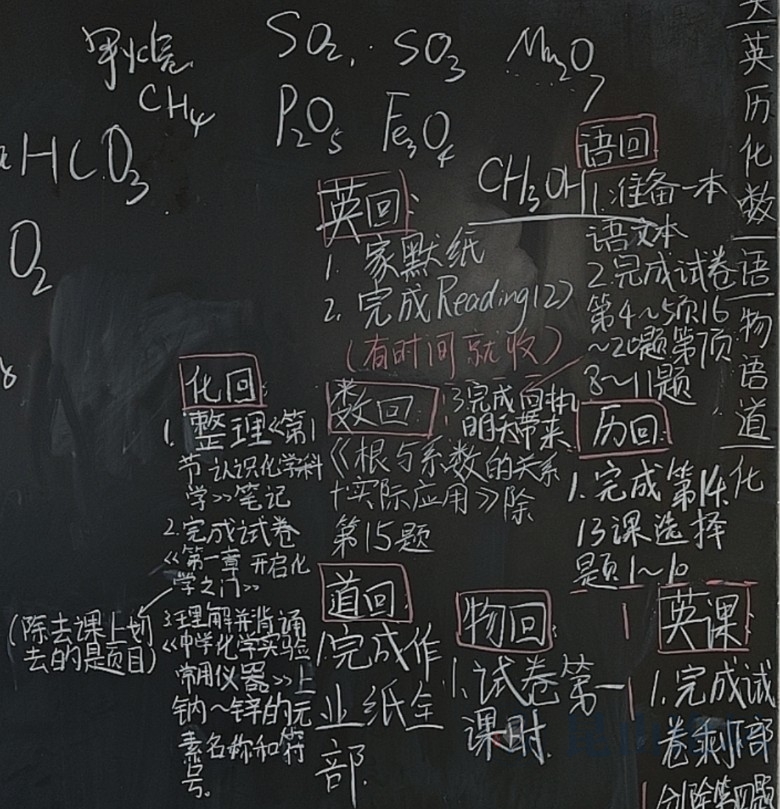 甲烷
CH₄
SO₂. SO₃ Mn₂O₇
P₂O₅ Fe₃O₄
HCO₃
O₂
CH₃OH
语回
1.准备一本
语文本
2.完成试卷
第4~5页16
~20题第7页
8~11题
英回:
1. 家默纸
2. 完成Reading(2)
(有时间就收)
3完成
明天带来
数回:
《根与系数的关系
+实际应用》除
第15题
历回
1.完成第14
13课选择
题1~10
化回
1.整理《第1
节认识化学科
学》笔记
2.完成试卷
《第一章 开启化
学之门》
(除去课上划
去的题目)
3.理解并背诵
《中学化学实验
常用仪器》上
钠~锌的元
素名称和符
号。
道回:
1.完成作
业纸全
部.
物回:
1.试卷第一
课时.
英课
1.完成试
卷剩下部
英
历
化
数
语
物
语
道
化